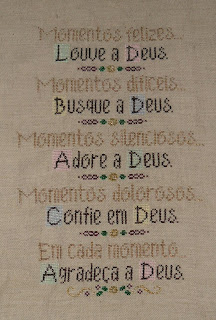 Momentos felizes...
Louve a Deus.
Momentos difíceis...
Busque a Deus.
Momentos silenciosos...
Adore a Deus.
Momentos dolorosos...
Confie em Deus.
Em cada momento...
Agradeça a Deus.